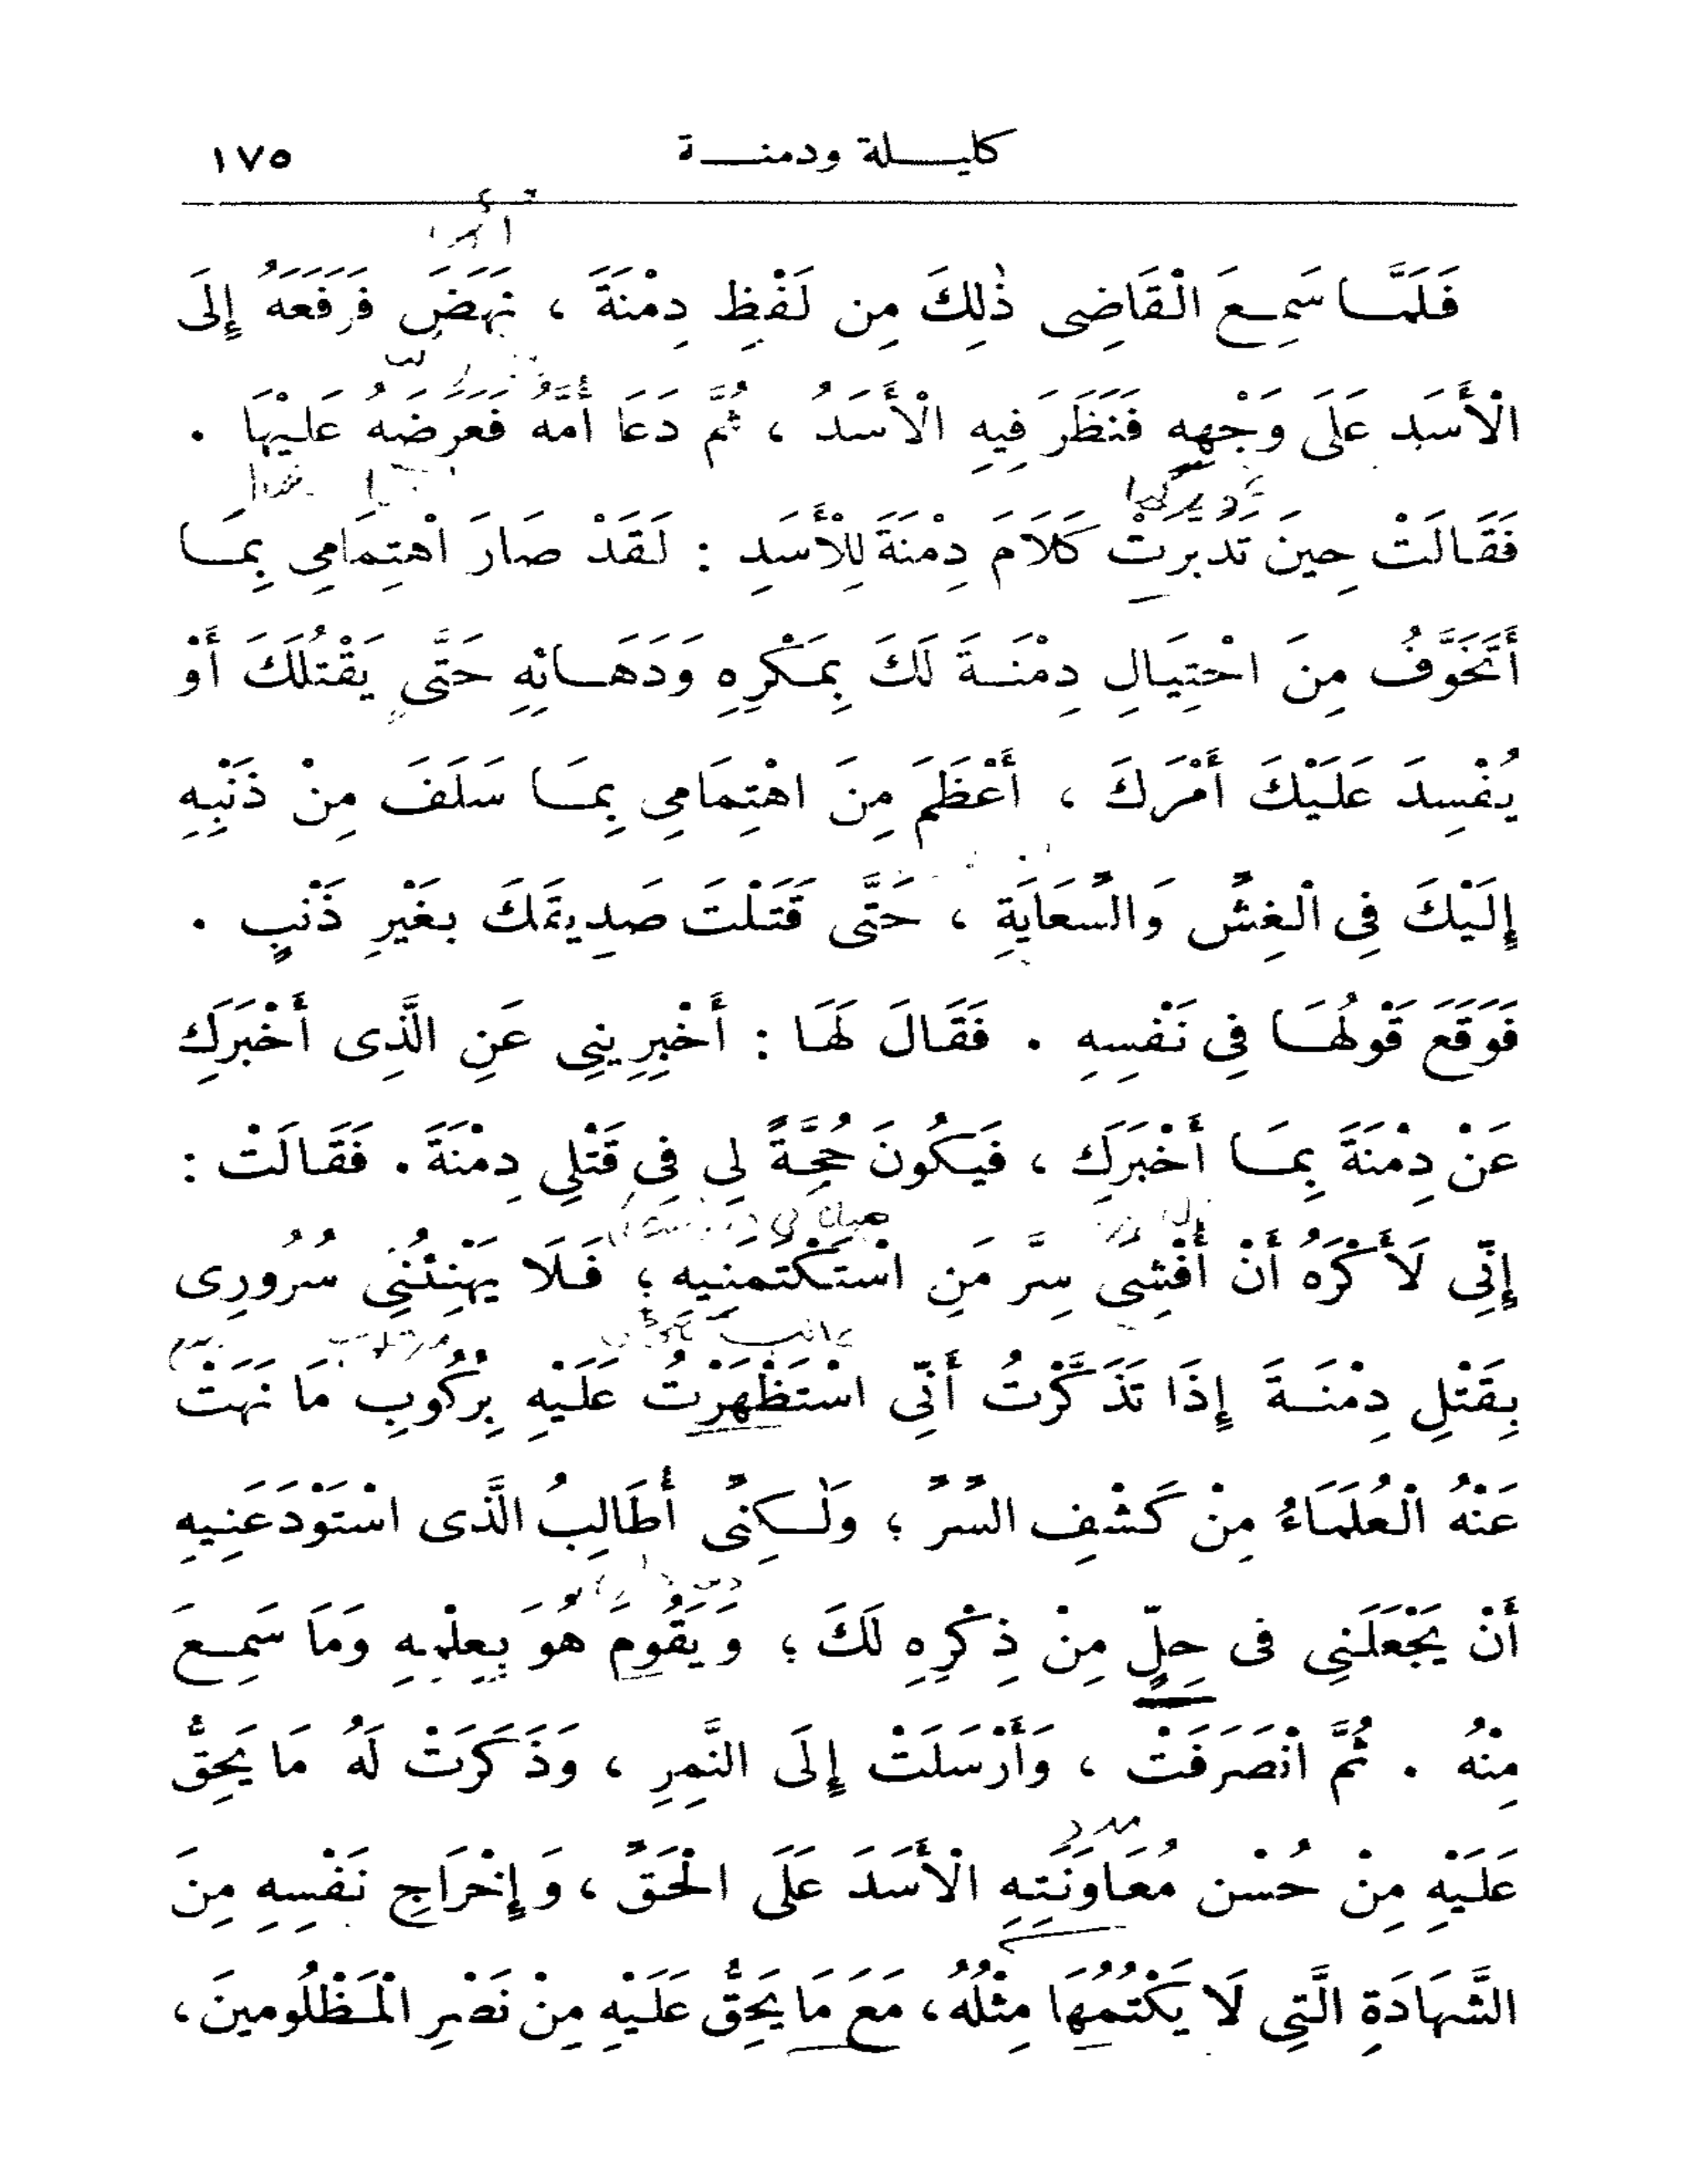 كليلة ودمنة ١٧٥
فَلَمَّا سَمِعَ الْقَاضِى ذٰلِكَ مِن لَفْظِ دِمْنَةَ ، نَهَضَ فَرَفَعَهُ إِلَى
الْأَسَدِ عَلَى وَجْهِهِ فَنَظَرَ فِيهِ الْأَسَدُ ، ثُمَّ دَعَا أُمَّهُ فَعَرَضَهُ عَلَيْهَا .
فَقَالَتْ حِينَ تَدَبَّرَتْ كَلَامَ دِمْنَةَ لِلْأَسَدِ : لَقَدْ صَارَ اهْتِمَامِى بِمَا
أَتَخَوَّفُ مِنَ احْتِيَالِ دِمْنَةَ لَكَ بِمَكْرِهِ وَدَهَائِهِ حَتَّى يَقْتُلَكَ أَوْ
يُفْسِدَ عَلَيْكَ أَمْرَكَ ، أَعْظَمَ مِنَ اهْتِمَامِى بِمَا سَلَفَ مِنْ ذَنْبِهِ
إِلَيْكَ فِى الْغِشِّ وَالسِّعَايَةِ ، حَتَّى قَتَلْتَ صَدِيقَكَ بِغَيْرِ ذَنْبٍ .
فَوَقَعَ قَوْلُهَا فِى نَفْسِهِ . فَقَالَ لَهَا : أَخْبِرِينِى عَنِ الَّذِى أَخْبَرَكِ
عَنْ دِمْنَةَ بِمَا أَخْبَرَكِ ، فَيَكُونَ حُجَّةً لِى فِى قَتْلِى دِمْنَةَ . فَقَالَتْ :
إِنِّى لَأَكْرَهُ أَنْ أُفْشِىَ سِرَّ مَنِ اسْتَكْتَمَنِيهِ ؛ فَلَا يَهْنِئُنِى سُرُورِى
بِقَتْلِ دِمْنَةَ إِذَا تَذَكَّرْتُ أَنِّى اسْتَظْهَرْتُ عَلَيْهِ بِرُكُوبِ مَا نَهَتْ
عَنْهُ الْعُلَمَاءُ مِنْ كَشْفِ السِّرِّ ؛ وَلٰكِنِّى أُطَالِبُ الَّذِى اسْتَوْدَعَنِيهِ
أَنْ يَجْعَلَنِى فى حِلٍّ مِنْ ذِكْرِهِ لَكَ ؛ وَيَقُومَ هُوَ بِعِلْمِهِ وَمَا سَمِعَ
مِنْهُ . ثُمَّ انْصَرَفَتْ ، وَأَرْسَلَتْ إِلَى النَّمِرِ ، وَذَكَرَتْ لَهُ مَا يَحِقُّ
عَلَيْهِ مِنْ حُسْنِ مُعَاوَنَتِهِ الْأَسَدَ عَلَى الْحَقِّ ، وَإِخْرَاجِ نَفْسِهِ مِنَ
الشَّهَادَةِ الَّتِى لَا يَكْتُمُهَا مِثْلُهُ ، مَعَ مَا يَحِقُّ عَلَيْهِ مِنْ نَصْرِ الْمَظْلُومِينَ ،